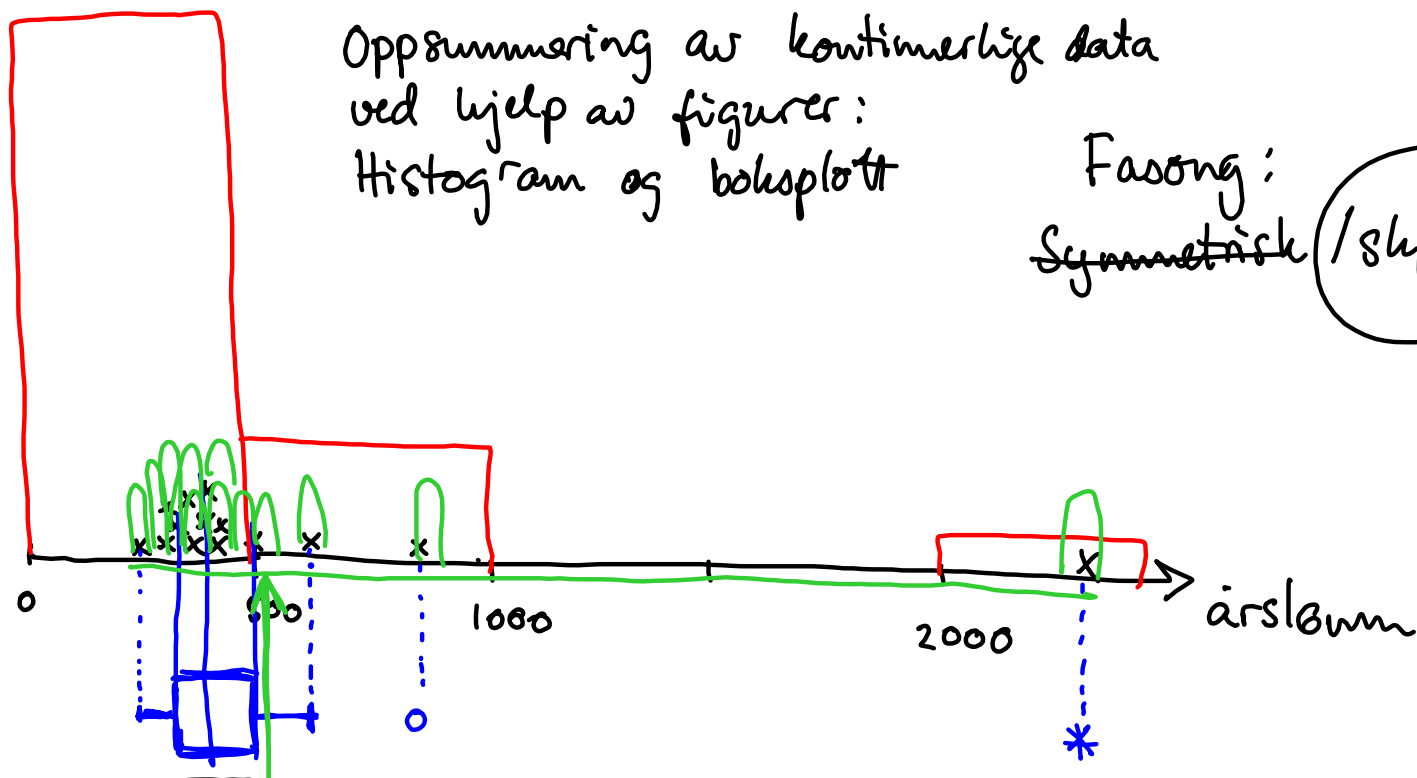 Oppsummering av kontinuerlige data
ved hjelp av figurer:
Histogram og boksplott
Fasong:
Symmetrisk /
0
500
1000
2000
årslønn